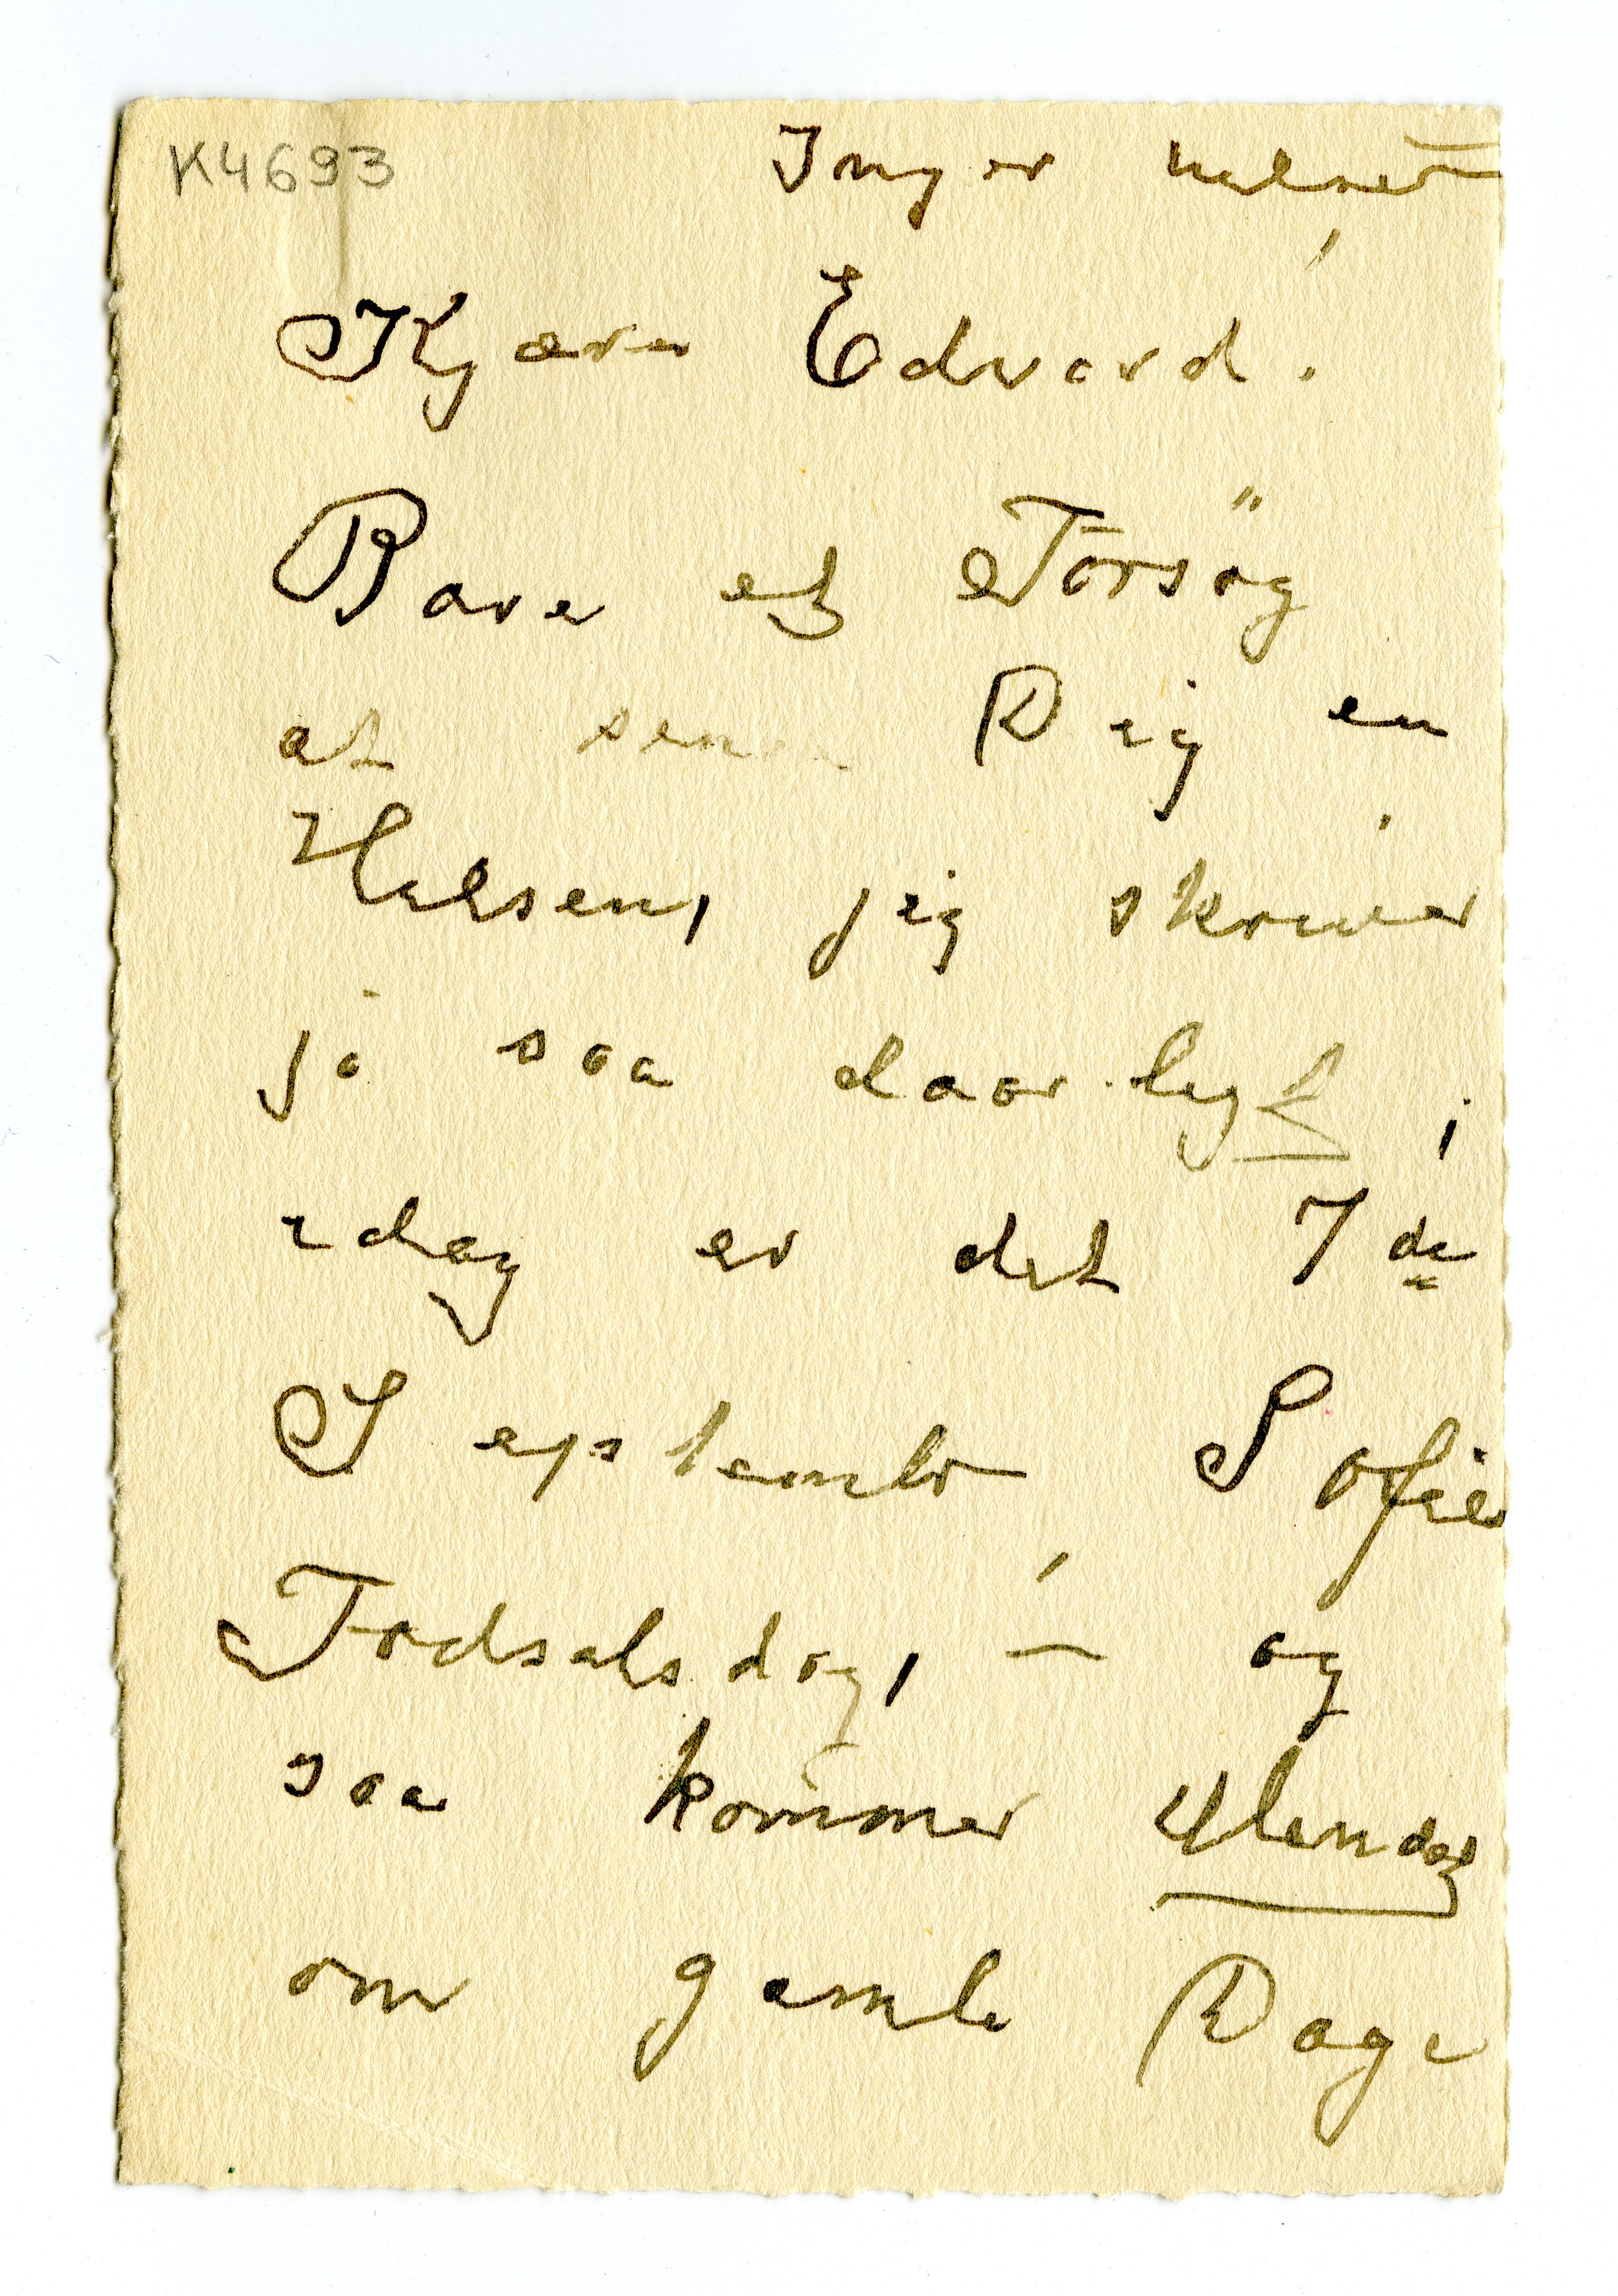 K4693
Inger hilser
Kjære Edvard.
Bare et Forsög
at sende Dig en
Hilsen, jeg skriver
jo saa daarligt,
idag er det 7de
September, Sofies
Fødselsdag, – og
saa kommer
om gamle Dage